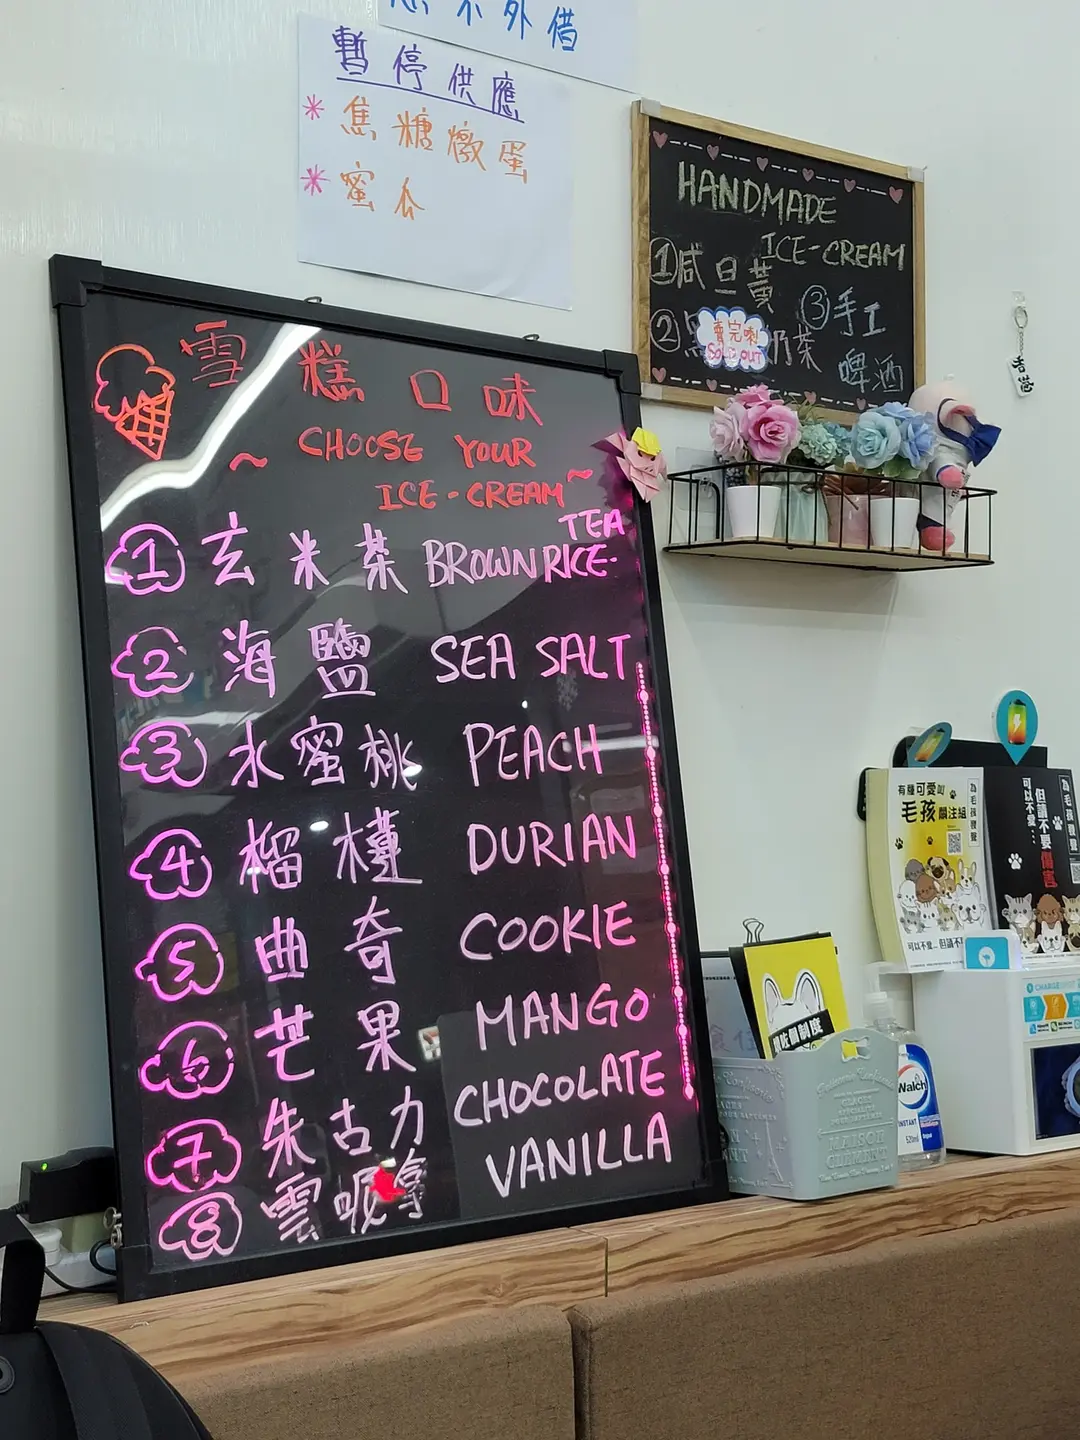 不外借
暫停供應
* 焦糖燉蛋
* 蜜瓜
HANDMADE
ICE-CREAM
①咸旦黃
②黑
賣完喇!
SOLD OUT
奶茶
③手工
啤酒
香港
雪糕口味
~ CHOOSE YOUR
ICE-CREAM ~
① 玄米茶 BROWN RICE-
TEA
② 海鹽 SEA SALT
③ 水蜜桃 PEACH
④ 榴槤 DURIAN
⑤ 曲奇 COOKIE
⑥ 芒果 MANGO
⑦ 朱古力 CHOCOLATE
⑧ 雲呢拿 VANILLA
有種可愛叫
毛孩關注組
為毛孩發聲
可以不愛... 但請不
可以不愛...
但請不要
傷害
為毛孩發聲
個制度
CHARGE
MAISON
Walch
INSTANT
520ml